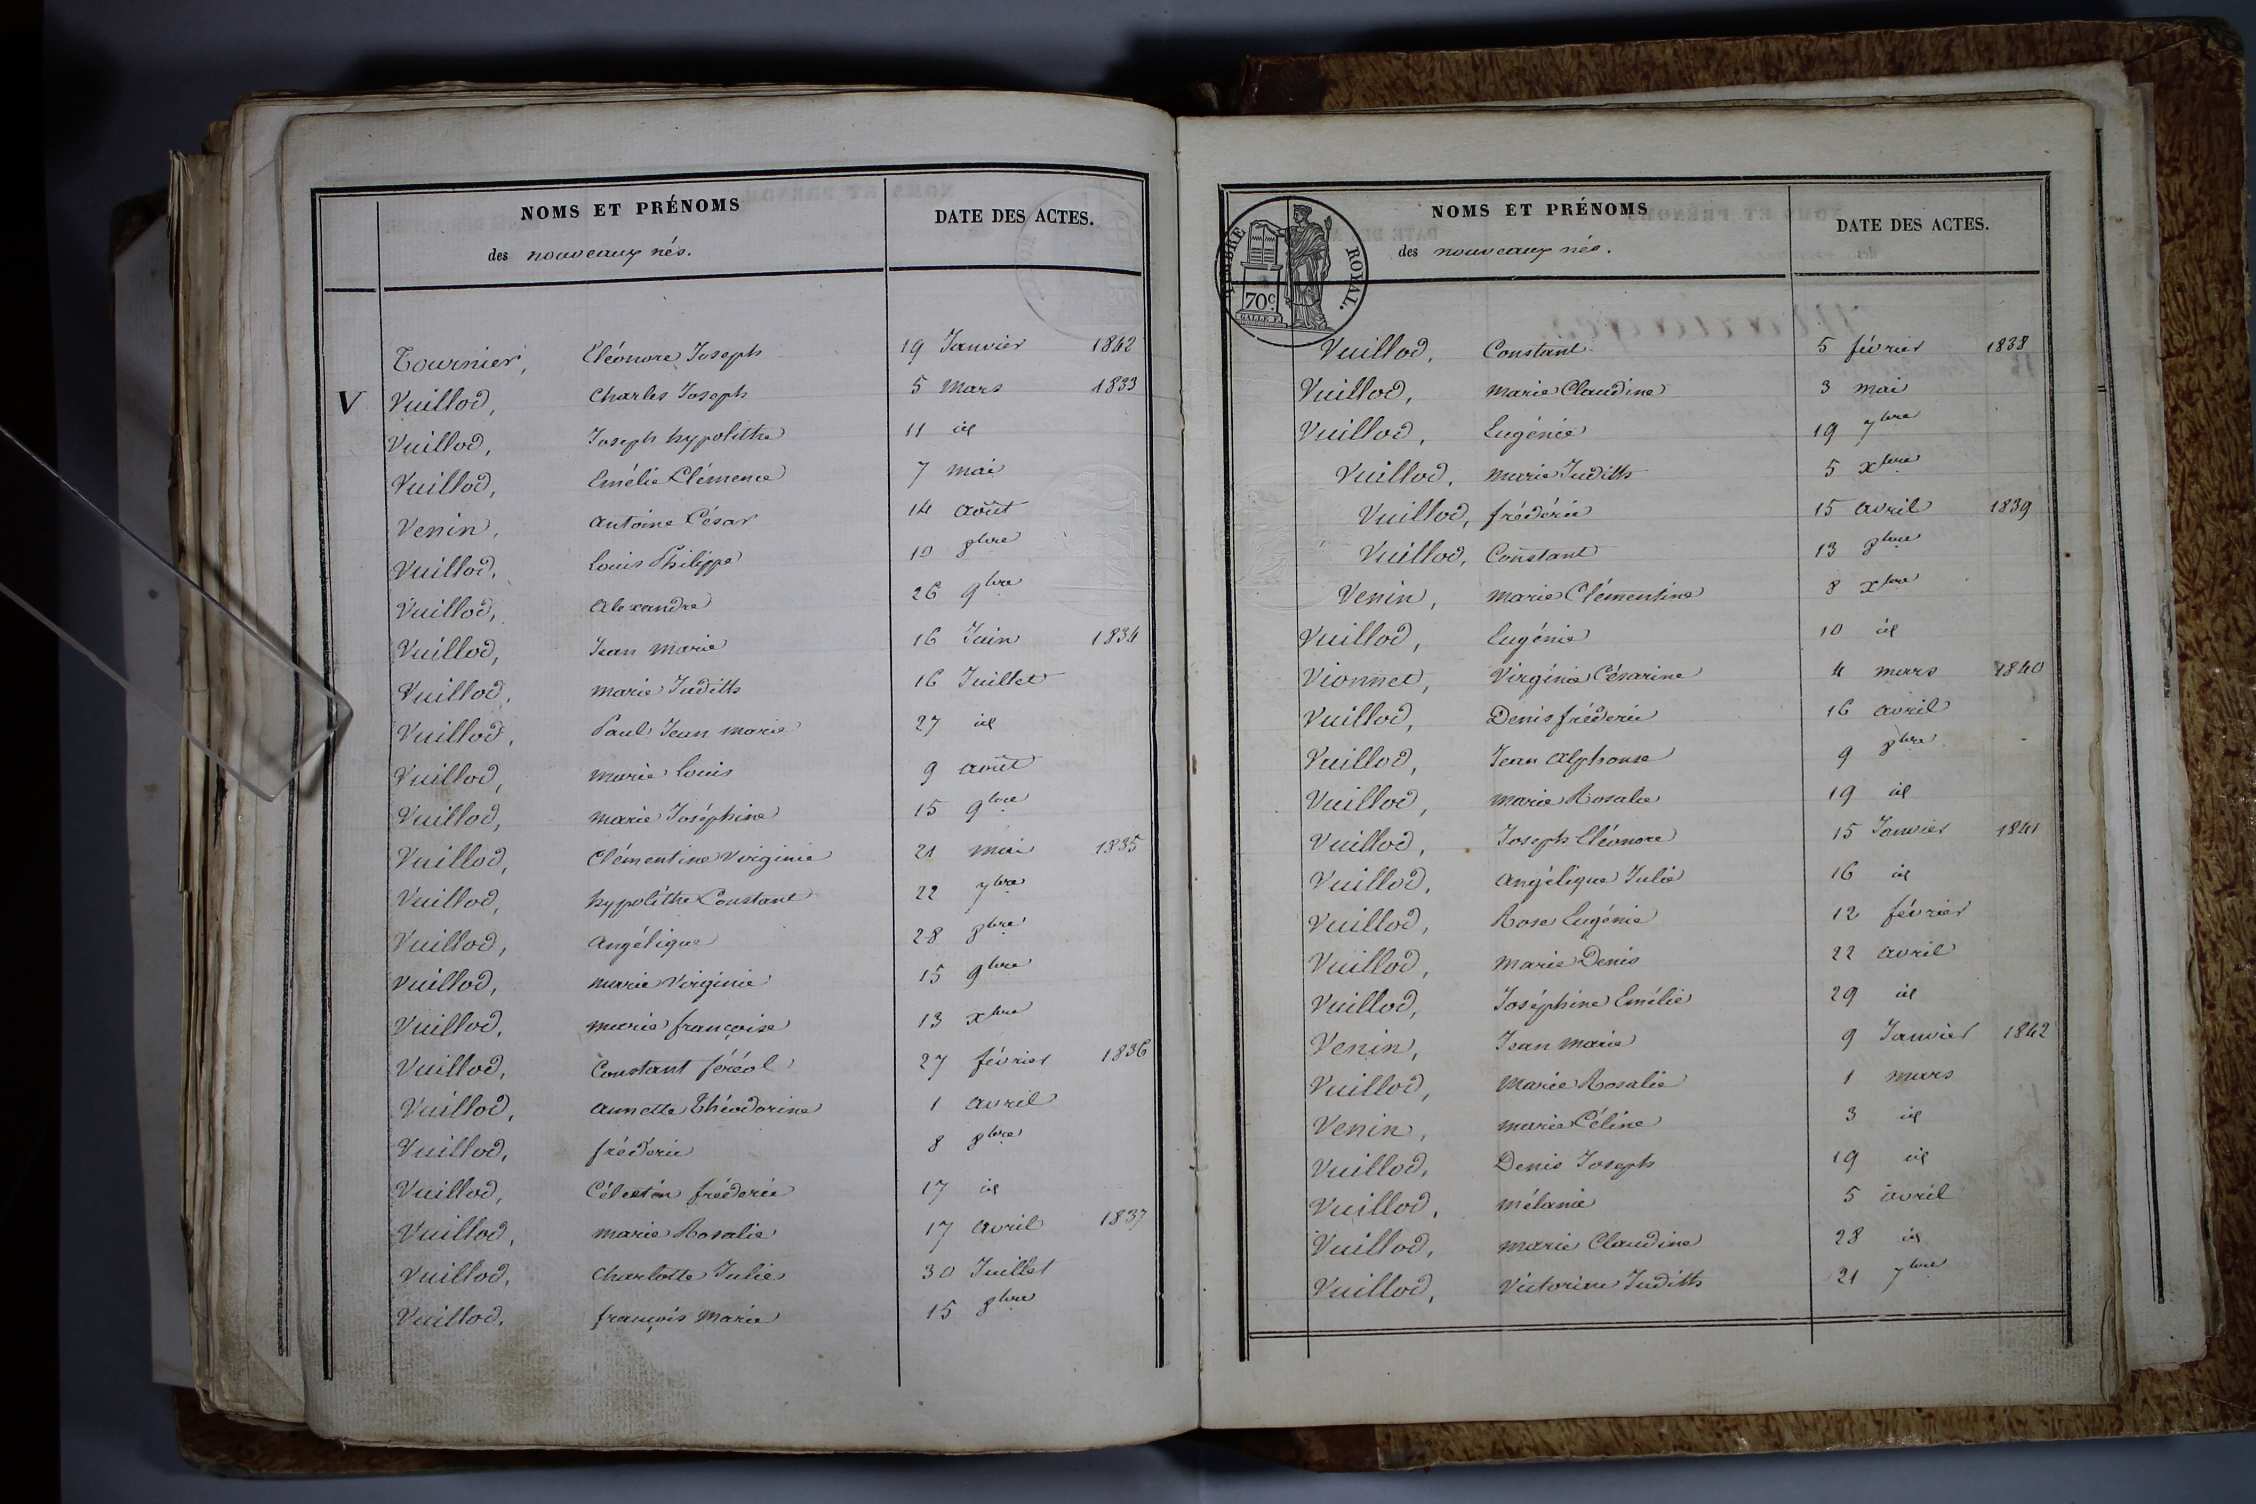 NOMS ET PRÉNOMS
DATE DES ACTES.
des nouveaux nés.
Tournier, Eléonore Joseph 19 Janvier 1842
V Vuillod, Charles Joseph 5 Mars 1833
Vuillod, Joseph hypolithe 11 id
Vuillod, Emélie Clémence 7 mai
Venin, Antoine César 14 août
Vuillod, Louis Philippe 10 8bre
Vuillod, Alexandre 26 9bre
Vuillod, Jean Marie 16 Juin 1834
Vuillod, marie Judith 16 Juillet
Vuillod, Paul Jean Marie 27 id
Vuillod, marie Louis 9 août
Vuillod, marie Joséphine 15 9bre
Vuillod, Clémentine Virginie 21 mai 1835
Vuillod, hypolithe Constant 22 7bre
Vuillod, Angélique 28 8bre
Vuillod, marie Virginie 15 9bre
Vuillod, marie françoise 13 xbre
Vuillod, Constant féréol 27 février 1836
Vuillod, annette Théodorine 1 avril
Vuillod, fréderic 8 8bre
Vuillod, Célestin fréderic 17 id
Vuillod, marie Rosalie 17 avril 1837
Vuillod, Charlotte Julie 30 Juillet
Vuillod, françois Marie 15 8bre
NOMS ET PRÉNOMS
DATE DES ACTES.
des nouveaux nés.
TIMBRE ROYAL.
70c.
GALLE F.
Vuillod, Constant 5 février 1838
Vuillod, Marie Claudine 3 mai
Vuillod, Eugénie 19 7bre
Vuillod, marie Judith 5 xbre
Vuillod, fréderic 15 avril 1839
Vuillod, Constant 13 8bre
Venin, marie Clémentine 8 xbre
Vuillod, Eugénie 10 id
Vionnet, Virginie Césarine 4 mars 1840
Vuillod, Denis fréderic 16 avril
Vuillod, Jean Alphonse 9 8bre
Vuillod, marie Rosalie 19 id
Vuillod, Joseph Eléonore 15 Janvier 1841
Vuillod, Angélique Julie 16 id
Vuillod, Rose Eugénie 12 février
Vuillod, Marie Denis 22 avril
Vuillod, Joséphine Emélie 29 id
Venin, Jean Marie 9 Janvier 1842
Vuillod, Marie Rosalie 1 mars
Venin, marie Céline 3 id
Vuillod, Denis Joseph 19 id
Vuillod, Mélanie 5 avril
Vuillod, Marie Claudine 28 id
Vuillod, Victorine Judith 21 7bre